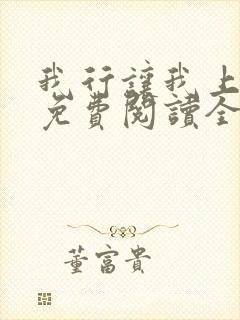 我行讓我上
免費閱讀全
董富貴